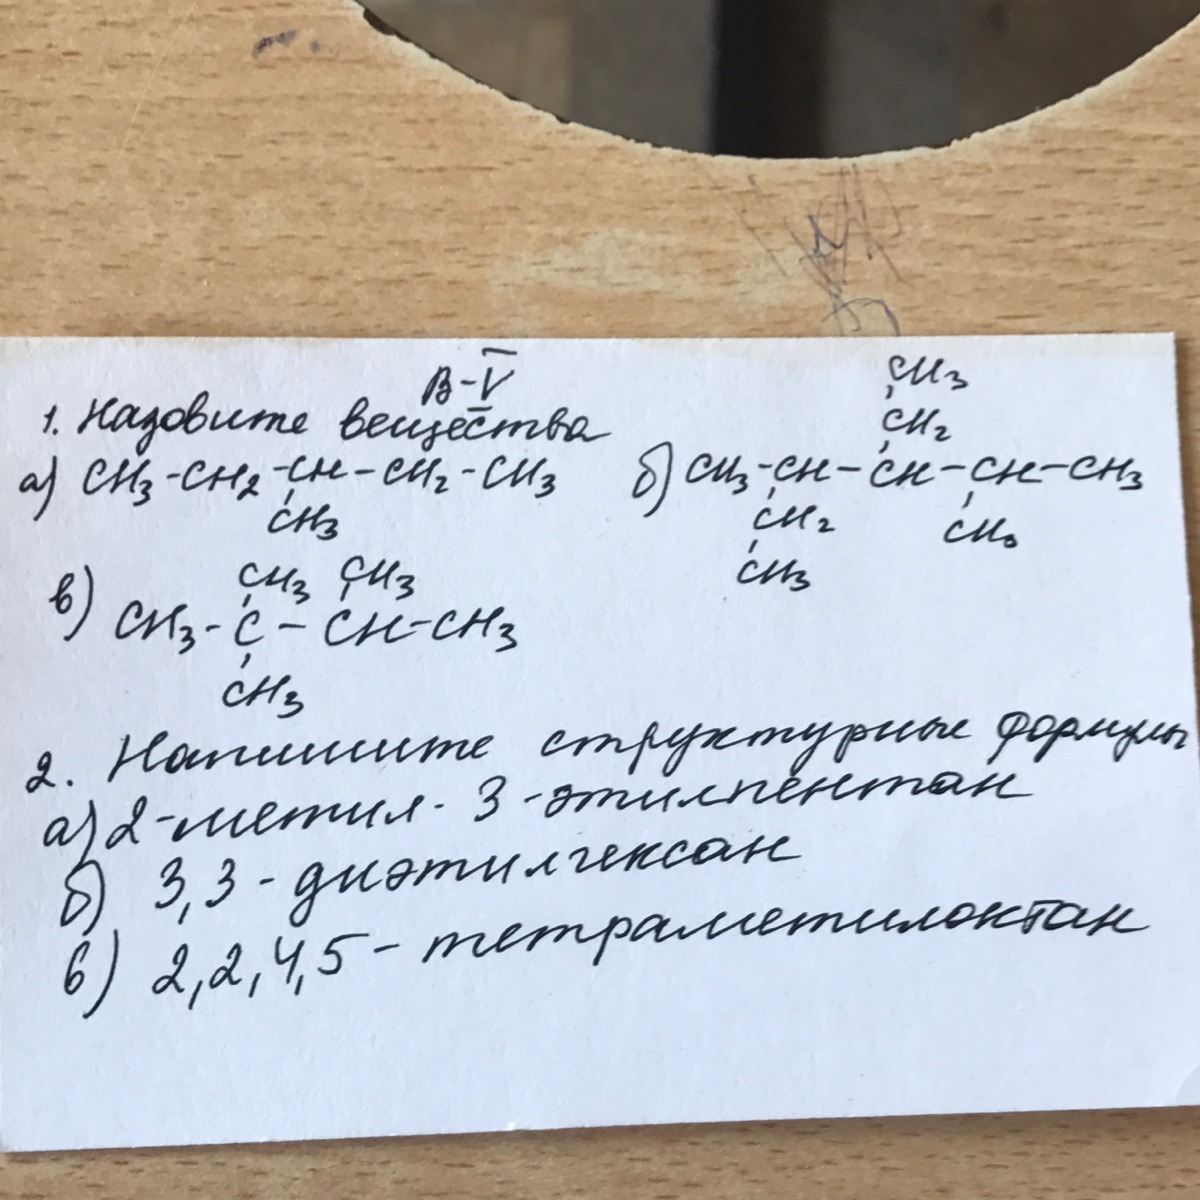 В-V
1. Назовите вещества
а) CH3-CH2-CH-CH2-CH3
CH3
б) CH3-CH-CH-CH-CH3
CH3
CH2
CH2
CH3
CH3
в) CH3-C-CH-CH3
CH3 CH3
CH3
2. Напишите структурные формулы
а) 2-метил-3-этилпентан
б) 3,3-диэтилгексан
в) 2,2,4,5-тетраметилоктан